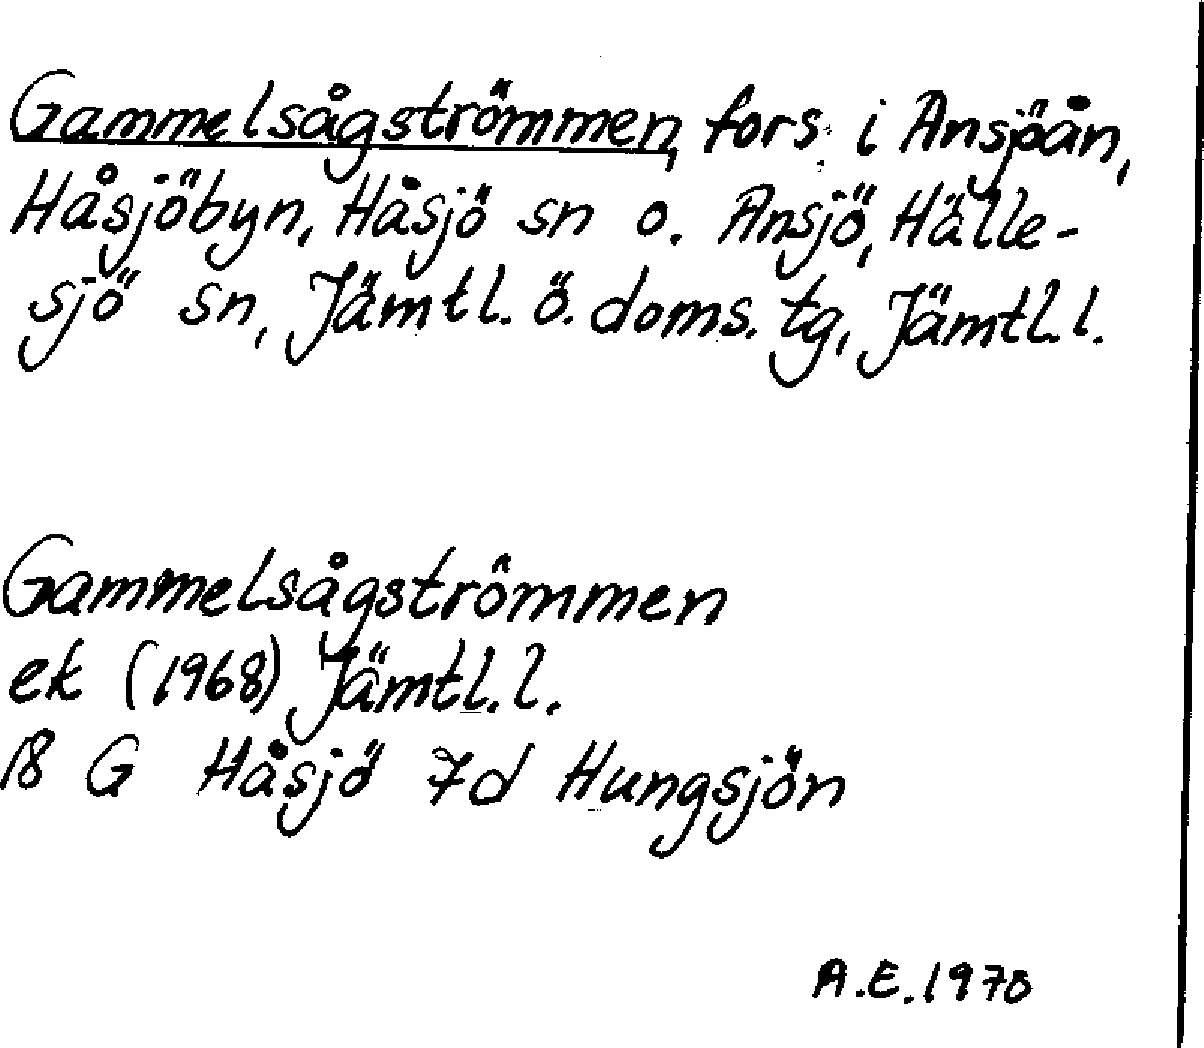 Gammelsågströmmen, fors i Ansjöån,
Håsjöbyn, Håsjö sn o. Ansjö, Hälle-
sjö sn, Jämtl. ö. doms. tg, Jämtl. l.
Gammelsågströmmen
ek (1968) Jämtl. l.
18 G Håsjö 7d Hungsjön
A.E. 1970